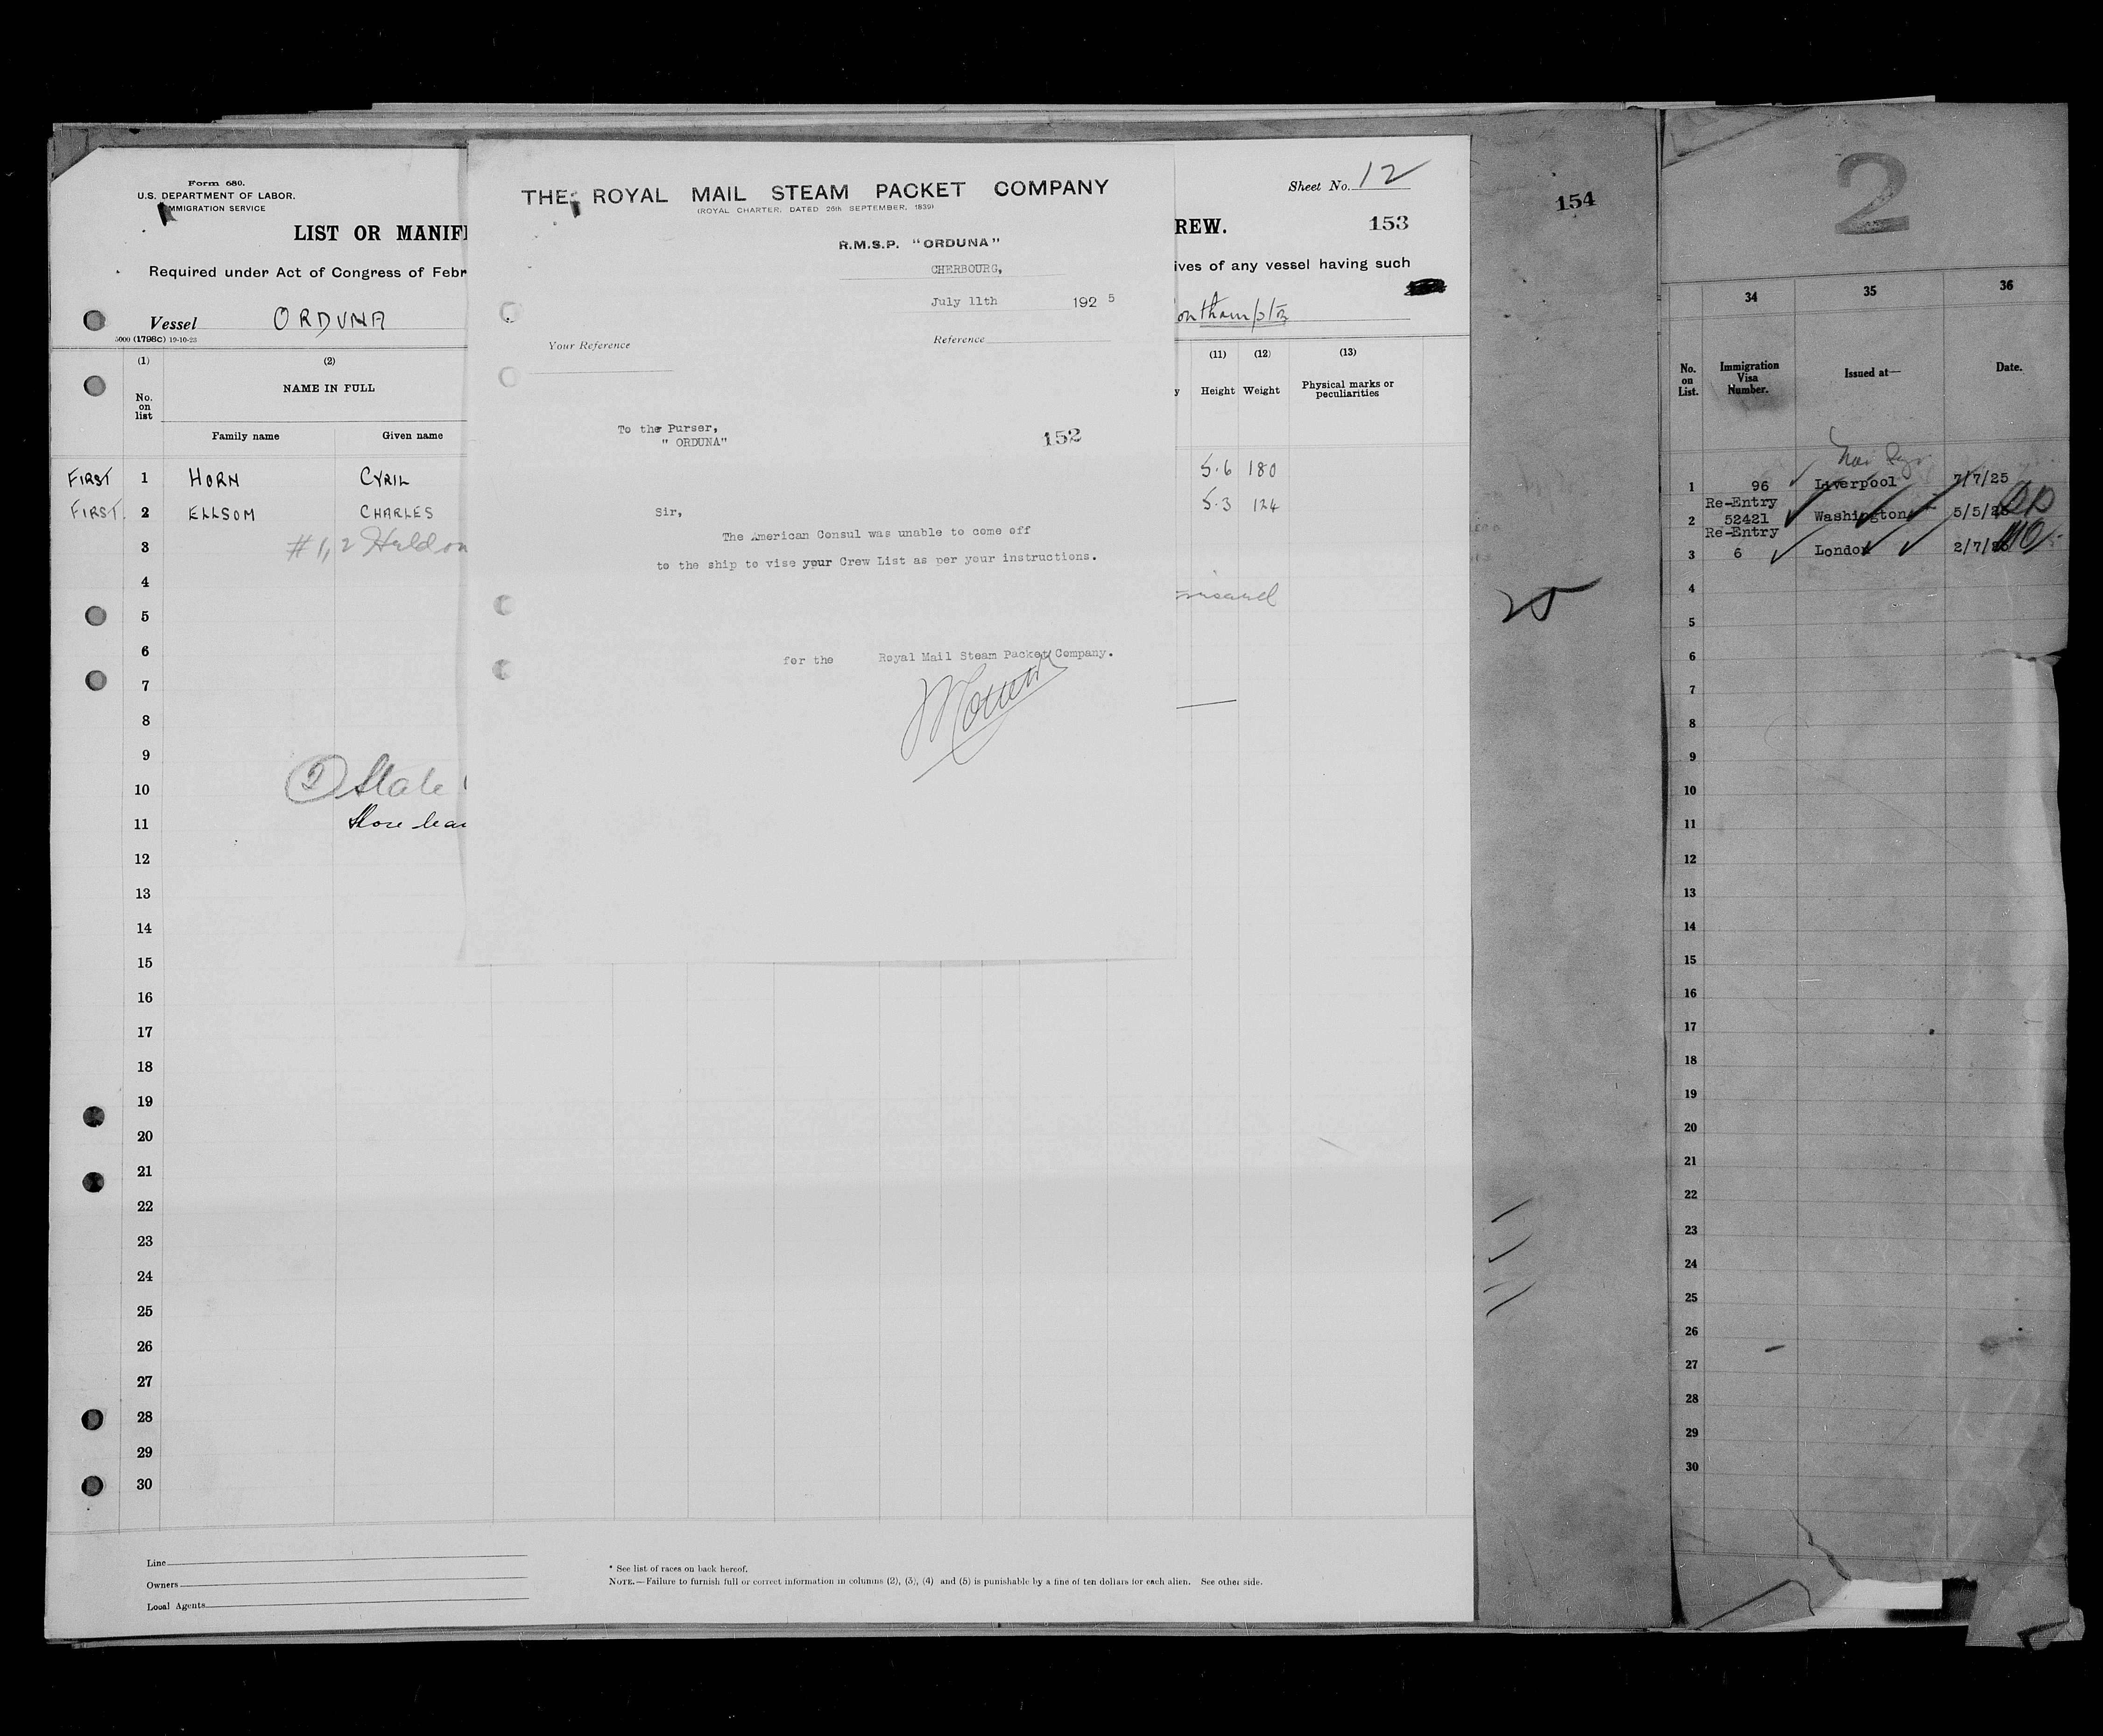 Form 680.
U.S. DEPARTMENT OF LABOR.
IMMIGRATION SERVICE
LIST OR MANIF
Required under Act of Congress of Febr
Vessel ORDUNA
5000 (1798C) 19-10-23
(1) (2)
No. on list
NAME IN FULL
Family name Given name
FIRST 1 HORN CYRIL
FIRST. 2 ELLSOM CHARLES
3 #1,2 Held on
4
5
6
7
8
9
10 State
11
12
13
14
15
16
17
18
19
20
21
22
23
24
25
26
27
28
29
30
Line
Owners
Local Agents
* See list of races on back hereof.
NOTE.—Failure to furnish full or correct information in columns (2), (3), (4) and (5) is punishable by a fine of ten dollars for each alien. See other side.
THE ROYAL MAIL STEAM PACKET COMPANY
(ROYAL CHARTER, DATED 26th SEPTEMBER, 1839)
R.M.S.P. "ORDUNA"
CHERBOURG,
July 11th 1925
Your Reference
Reference
To the Purser,
" ORDUNA"
152
Sir,
The American Consul was unable to come off
to the ship to vise your Crew List as per your instructions.
for the Royal Mail Steam Packet Company.
Sheet No. 12
REW. 153
ives of any vessel having such
outhampton
y
(11) (12) (13)
Height Weight Physical marks or peculiarities
5.6 180
5.3 124
154
25
2
34 35 36
No. on List.
Immigration Visa Number.
Issued at—
Date.
1 96 Liverpool 7/7/25
Re-Entry
2 52421 Washington 5/5/25
Re-Entry
3 6 London 2/7/25
4
5
6
7
8
9
10
11
12
13
14
15
16
17
18
19
20
21
22
23
24
25
26
27
28
29
30